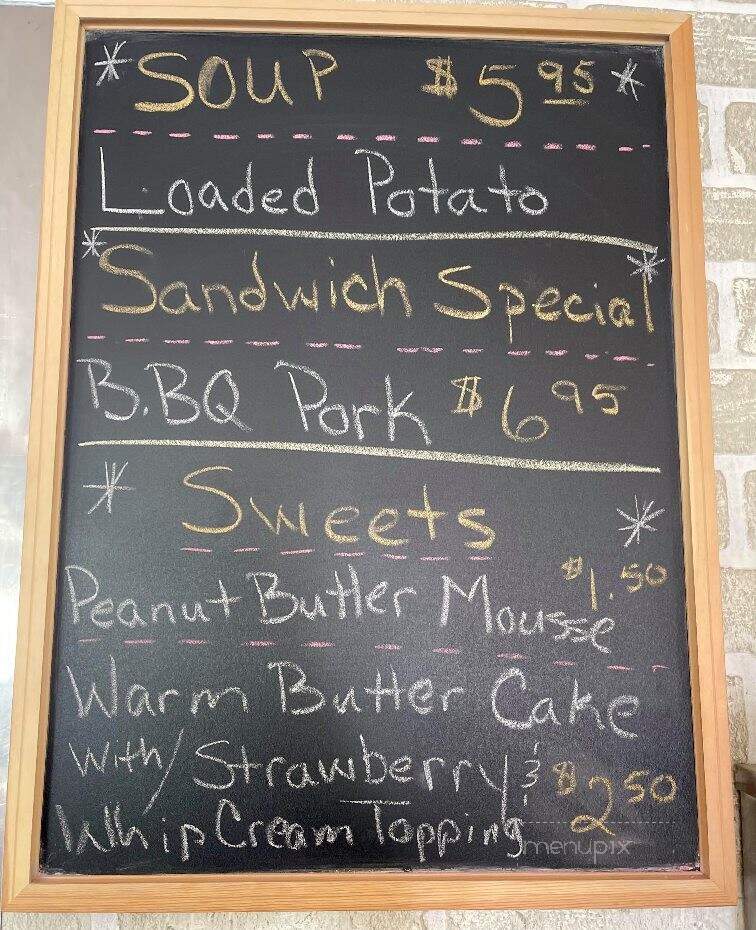 * SOUP $5.95 *
Loaded Potato
* Sandwich Special *
B.BQ Pork $6.95
* Sweets *
$1.50
Peanut Butter Mousse
Warm Butter Cake
With/Strawberry &
$2.50
Whip Cream Topping
menupix